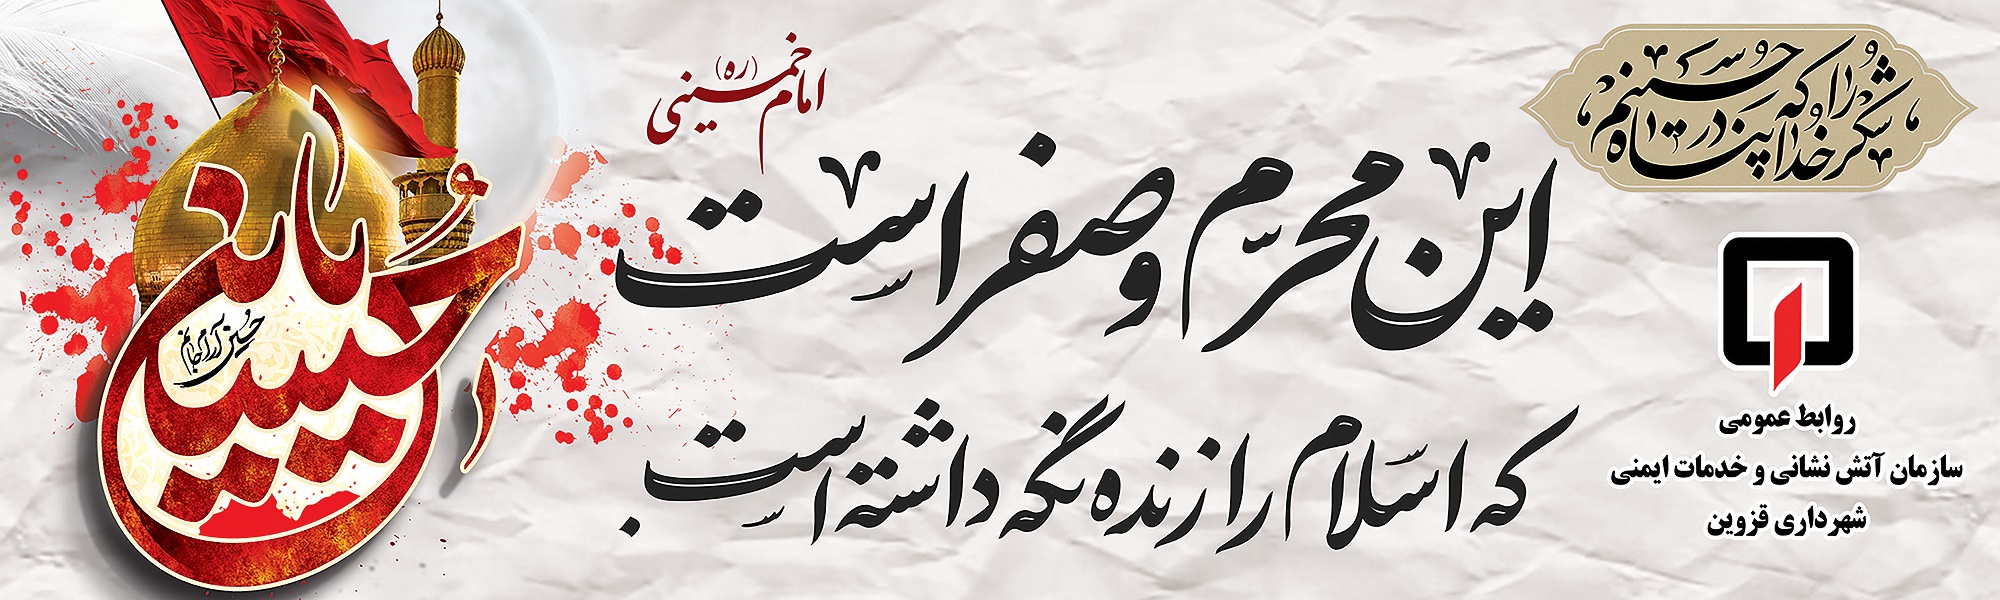 شکر خدا را که در پناه حسینم
امام خمینی (ره)
این محرّم و صفر است
که اسلام را زنده نگه داشته است.
حسین آرام جانم
روابط عمومی
سازمان آتش نشانی و خدمات ایمنی
شهرداری قزوین